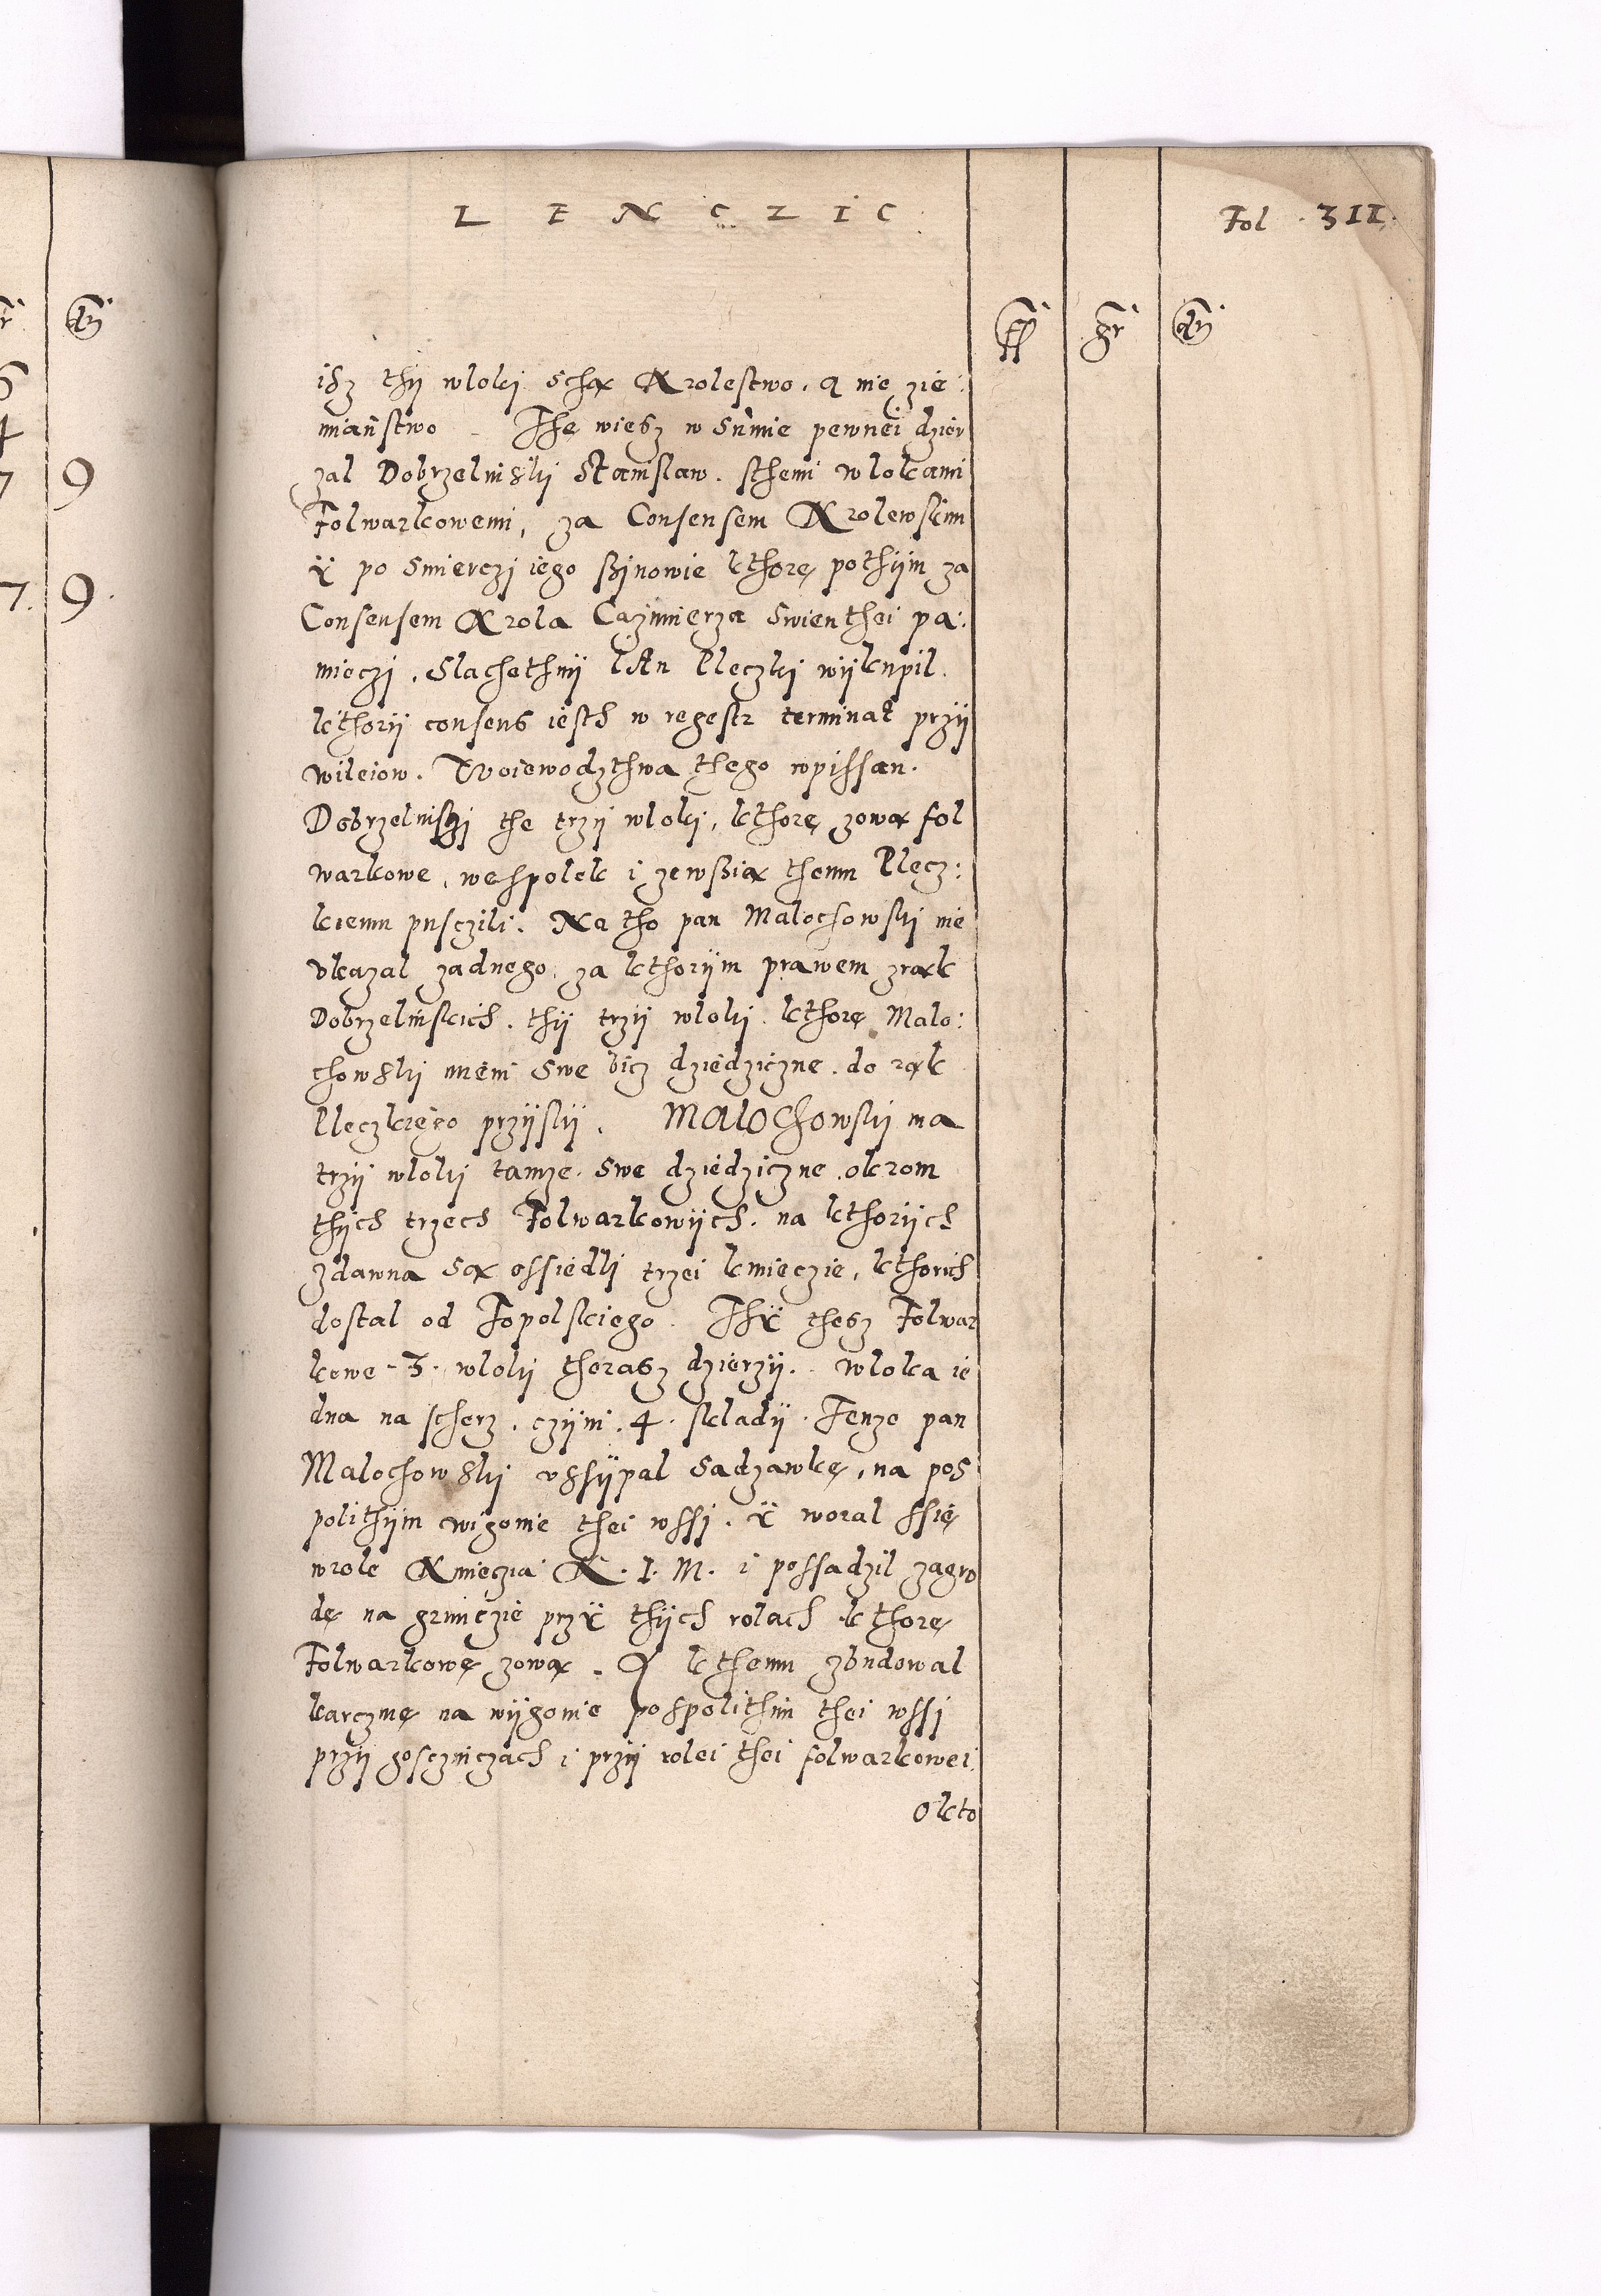 LENCZIC
Fol . 311.
ff gr dn
isz thy wloki scha Krolestwo . A nie zie:
mianstwo – The wiesz w sumie pewnei dzier
zal Dobrzelinski Stanislaw . sthemi wlokami
Folwarkowemi, za Consensem Krolewskim
Y po smierczi iego ssinowie kthore pothym za
Consensem Krola Cazimierza swienthei pa:
mieczi . Slachethny Jan Kleczki wykupil .
kthory consens iesth w regestr terminat przy
wileiow . Woiewodzthwa thego wpissan .
Dobrzelinsczi the trzy wloki, kthore zowa fol
warkowe, wespolek i ze wssia themu Klecz:
kiemu pusczili . Na tho pan Malochowski nie
vkazal zadnego, za kthorym prawem z rak
Dobrzelinskich . thy trzy wloki . kthore Malo:
chowski mieni swe bicz dziedziczne . do rak
Kleczkiego przysly . Malochowski ma
trzy wloki tamze swe dziedziczne . okrom
thych trzech Folwarkowych . na kthorych
zdawna sa ossiedli trzei kmieczie, kthorich
dostal od Topolskiego . Thy thesz Folwar
kowe – 3 . wloki therasz dzierzy . wloka ie
dna na scherz . czyni . 4 . sklady . Tenze pan
Malochowski vssypal sadzawke, na pos
polithym wigonie thei wssi . Y woral ssie
w role Kmieczia K . J . M . i possadzil zagro
de na grunczie przy thych rolach kthore
Folwarkowe zowa . A kthemu zbudowal
karczme na wygonie pospolithim thei wssi
przy gosczinczach i przy rolei thei folwarkowei
okto
r dn
4
7 9
7. 9.